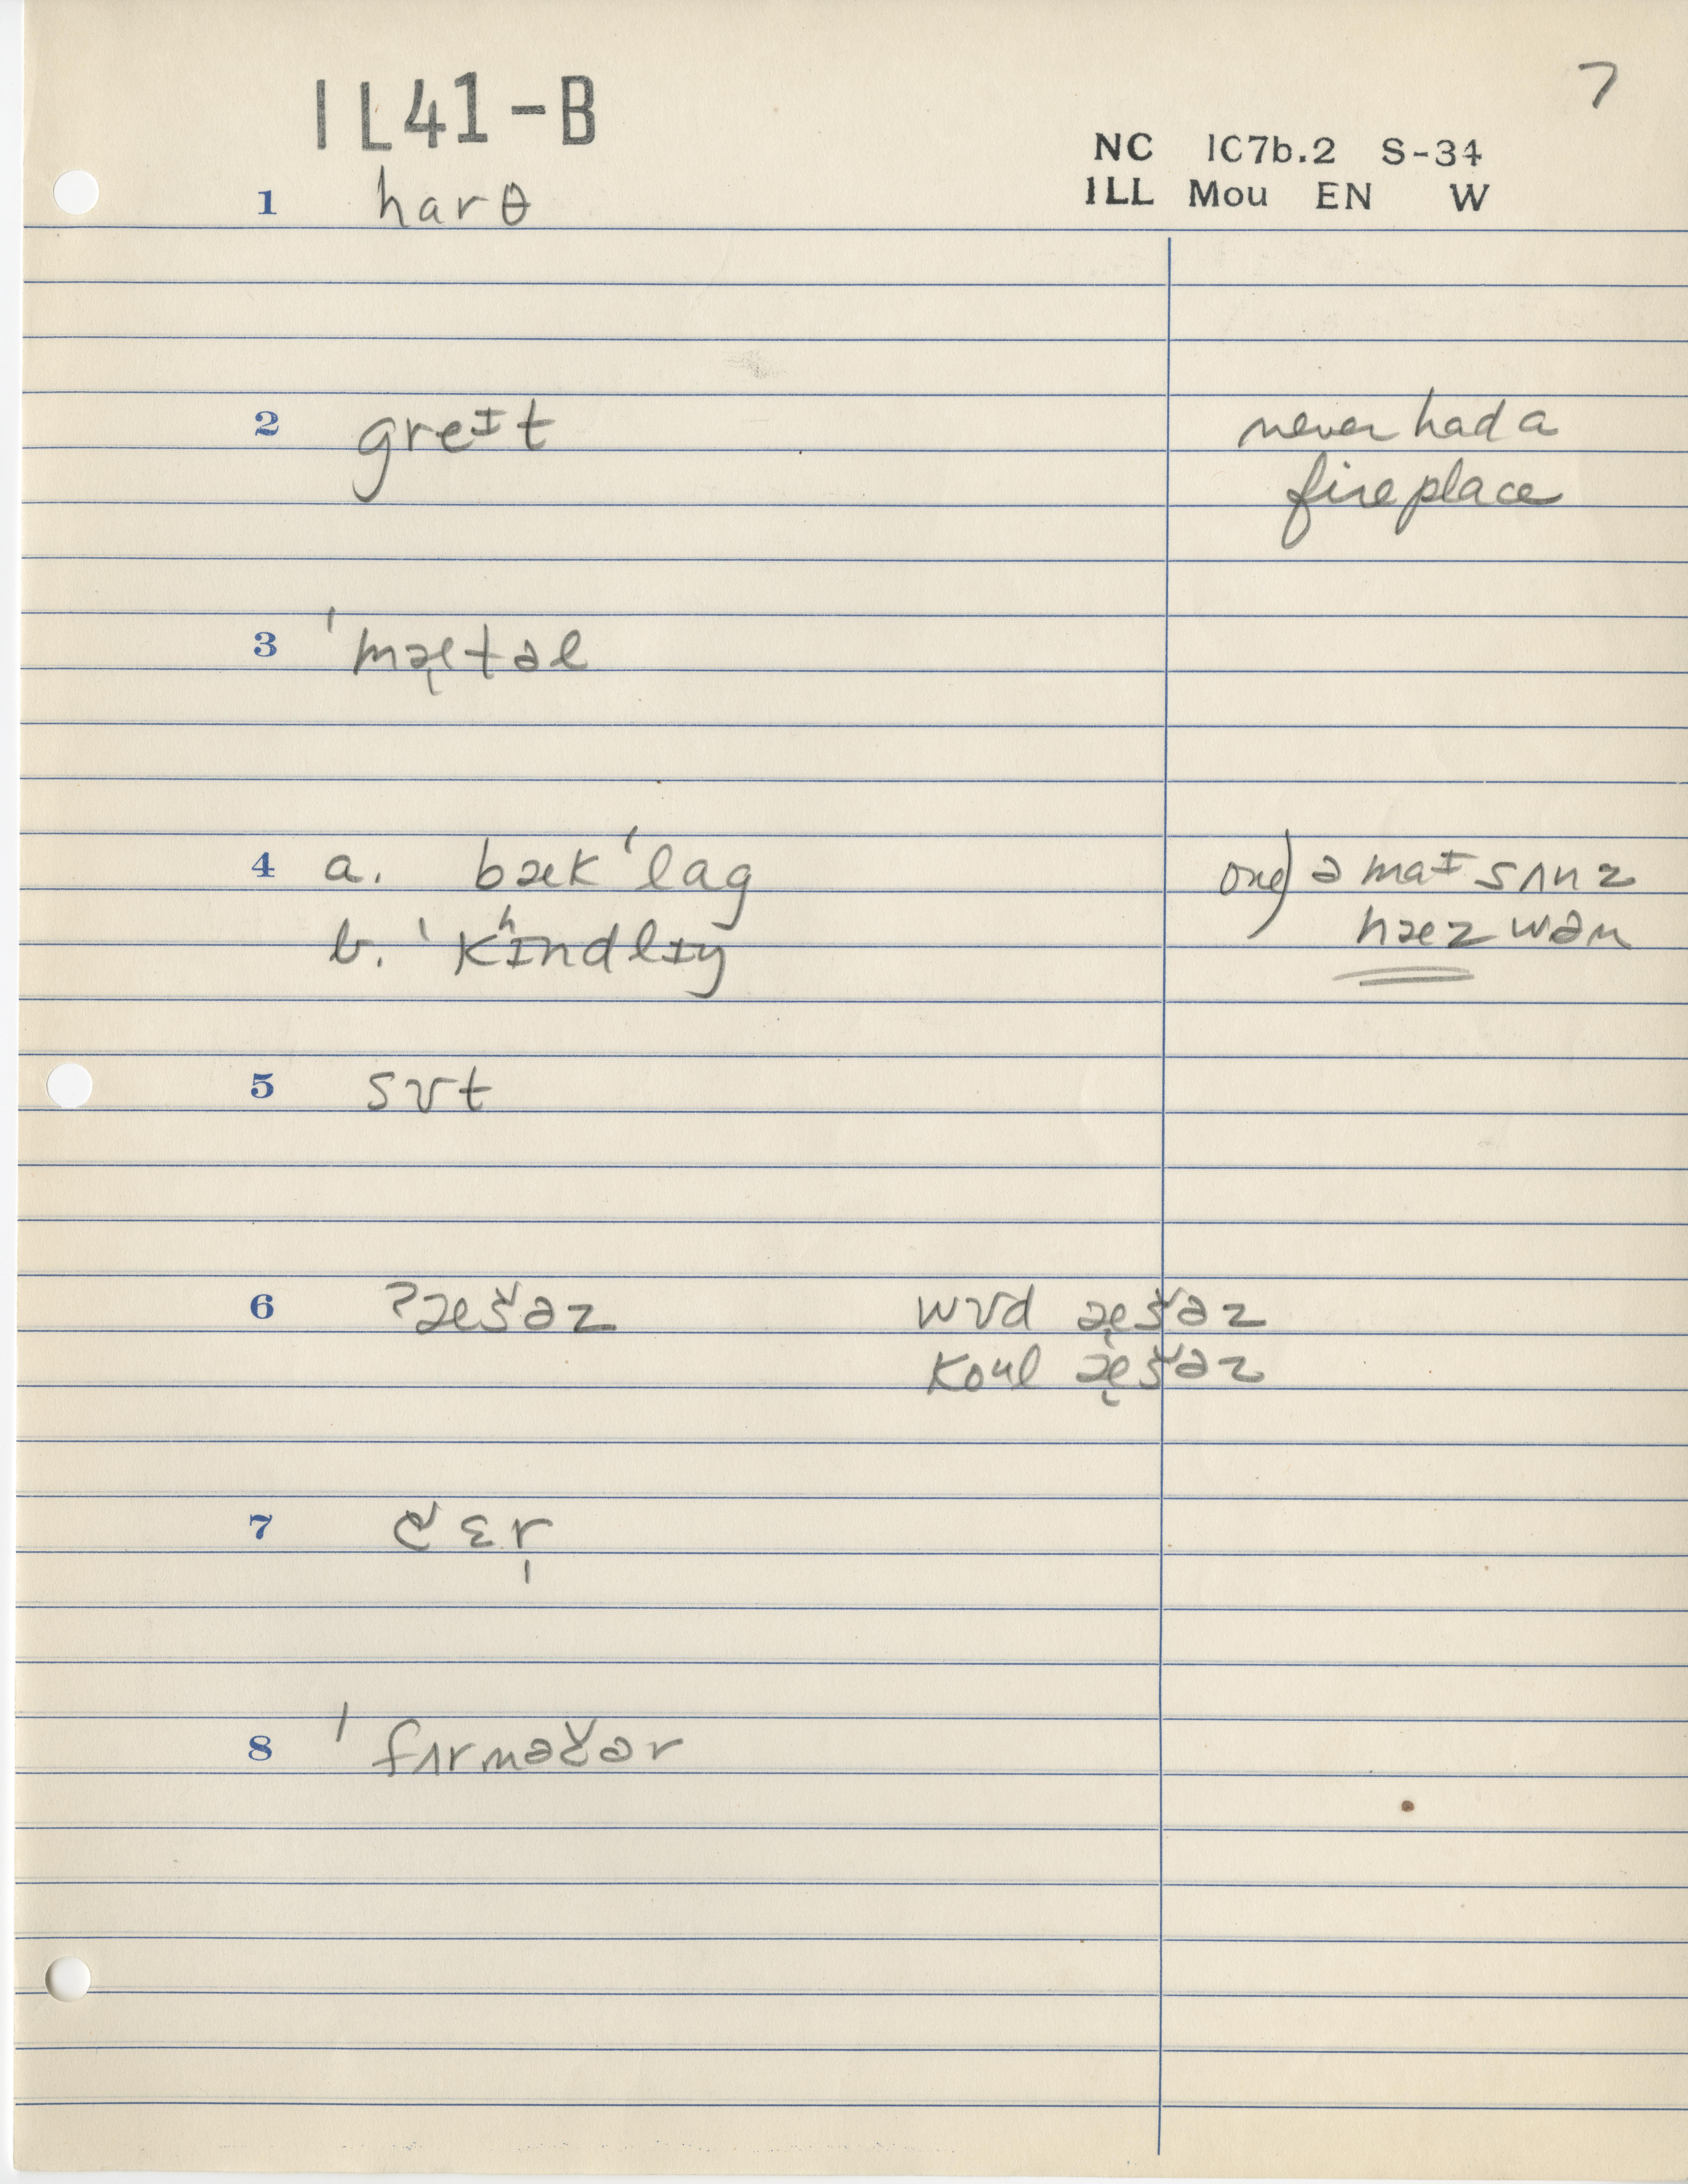 7
IL41-B
NC IC7b.2 S-34
ILL Mou EN W
1 harθ
2 greɪt never had a
fireplace
3 ˈmæ̨təl
4 a. bækˈlag one) ə maɪ sʌnz
b. ˈkʰɪndlɪy hæz wən
5 sʊt
6 ʔæšəz wʊd æ̨šəz
koul æ̨šəz
7 čɛr̩
8 ˈfɪrnəčər